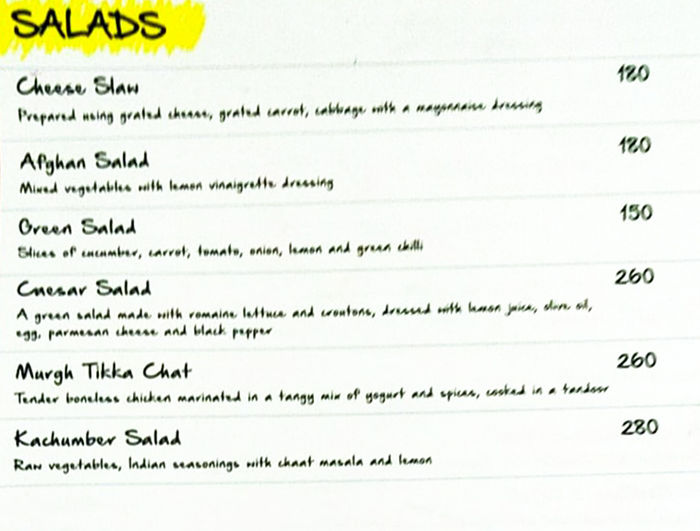 SALADS
Cheese Slaw 180
Prepared using grated cheese, grated carrot, cabbage with a mayonnaise dressing
Afghan Salad 180
Mixed vegetables with lemon vinaigrette dressing
Green Salad 150
Slices of cucumber, carrot, tomato, onion, lemon and green chilli
Caesar Salad 260
A green salad made with romaine lettuce and croutons, dressed with lemon juice, olive oil,
egg, parmesan cheese and black pepper
Murgh Tikka Chat 260
Tender boneless chicken marinated in a tangy mix of yogurt and spices, cooked in a tandoor
Kachumber Salad 280
Raw vegetables, Indian seasonings with chaat masala and lemon